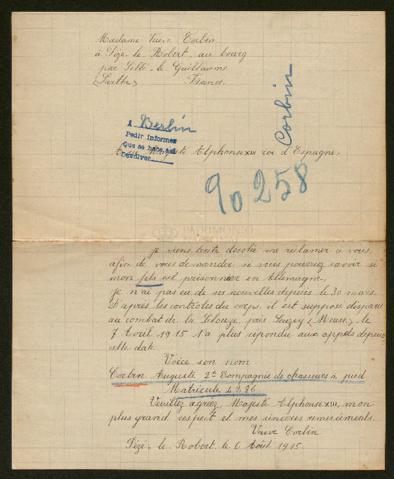 Madame Veuve Corbin
à Pézé-le-Robert au bourg
par Sillé-le-Guillaume
(Sarthe) France
Corbin
A Berlin
Pedir informes
Que se haga
Devolver
Alphonse XIII roi d'Espagne.
90258
Je viens toute désolée me réclamer à vous,
afin de vous demander si vous pouvez savoir si
mon fils est prisonnier en Allemagne.
Je n'ai pas eu de ses nouvelles depuis le 30 mars.
D'après les contrôles du corps, il est supposé disparu
au combat de la près (Meuse) le
7 Avril 1915 N'a plus répondu aux appels depuis
cette date.
Voici son nom
Corbin Auguste 2e Compagnie de chasseurs à pied
Matricule
Veuillez agréer, Majesté Alphonse XIII, mon
plus grand respect et mes sincères remerciements.
Veuve Corbin
Pézé-le-Robert le 6 Août 1915.